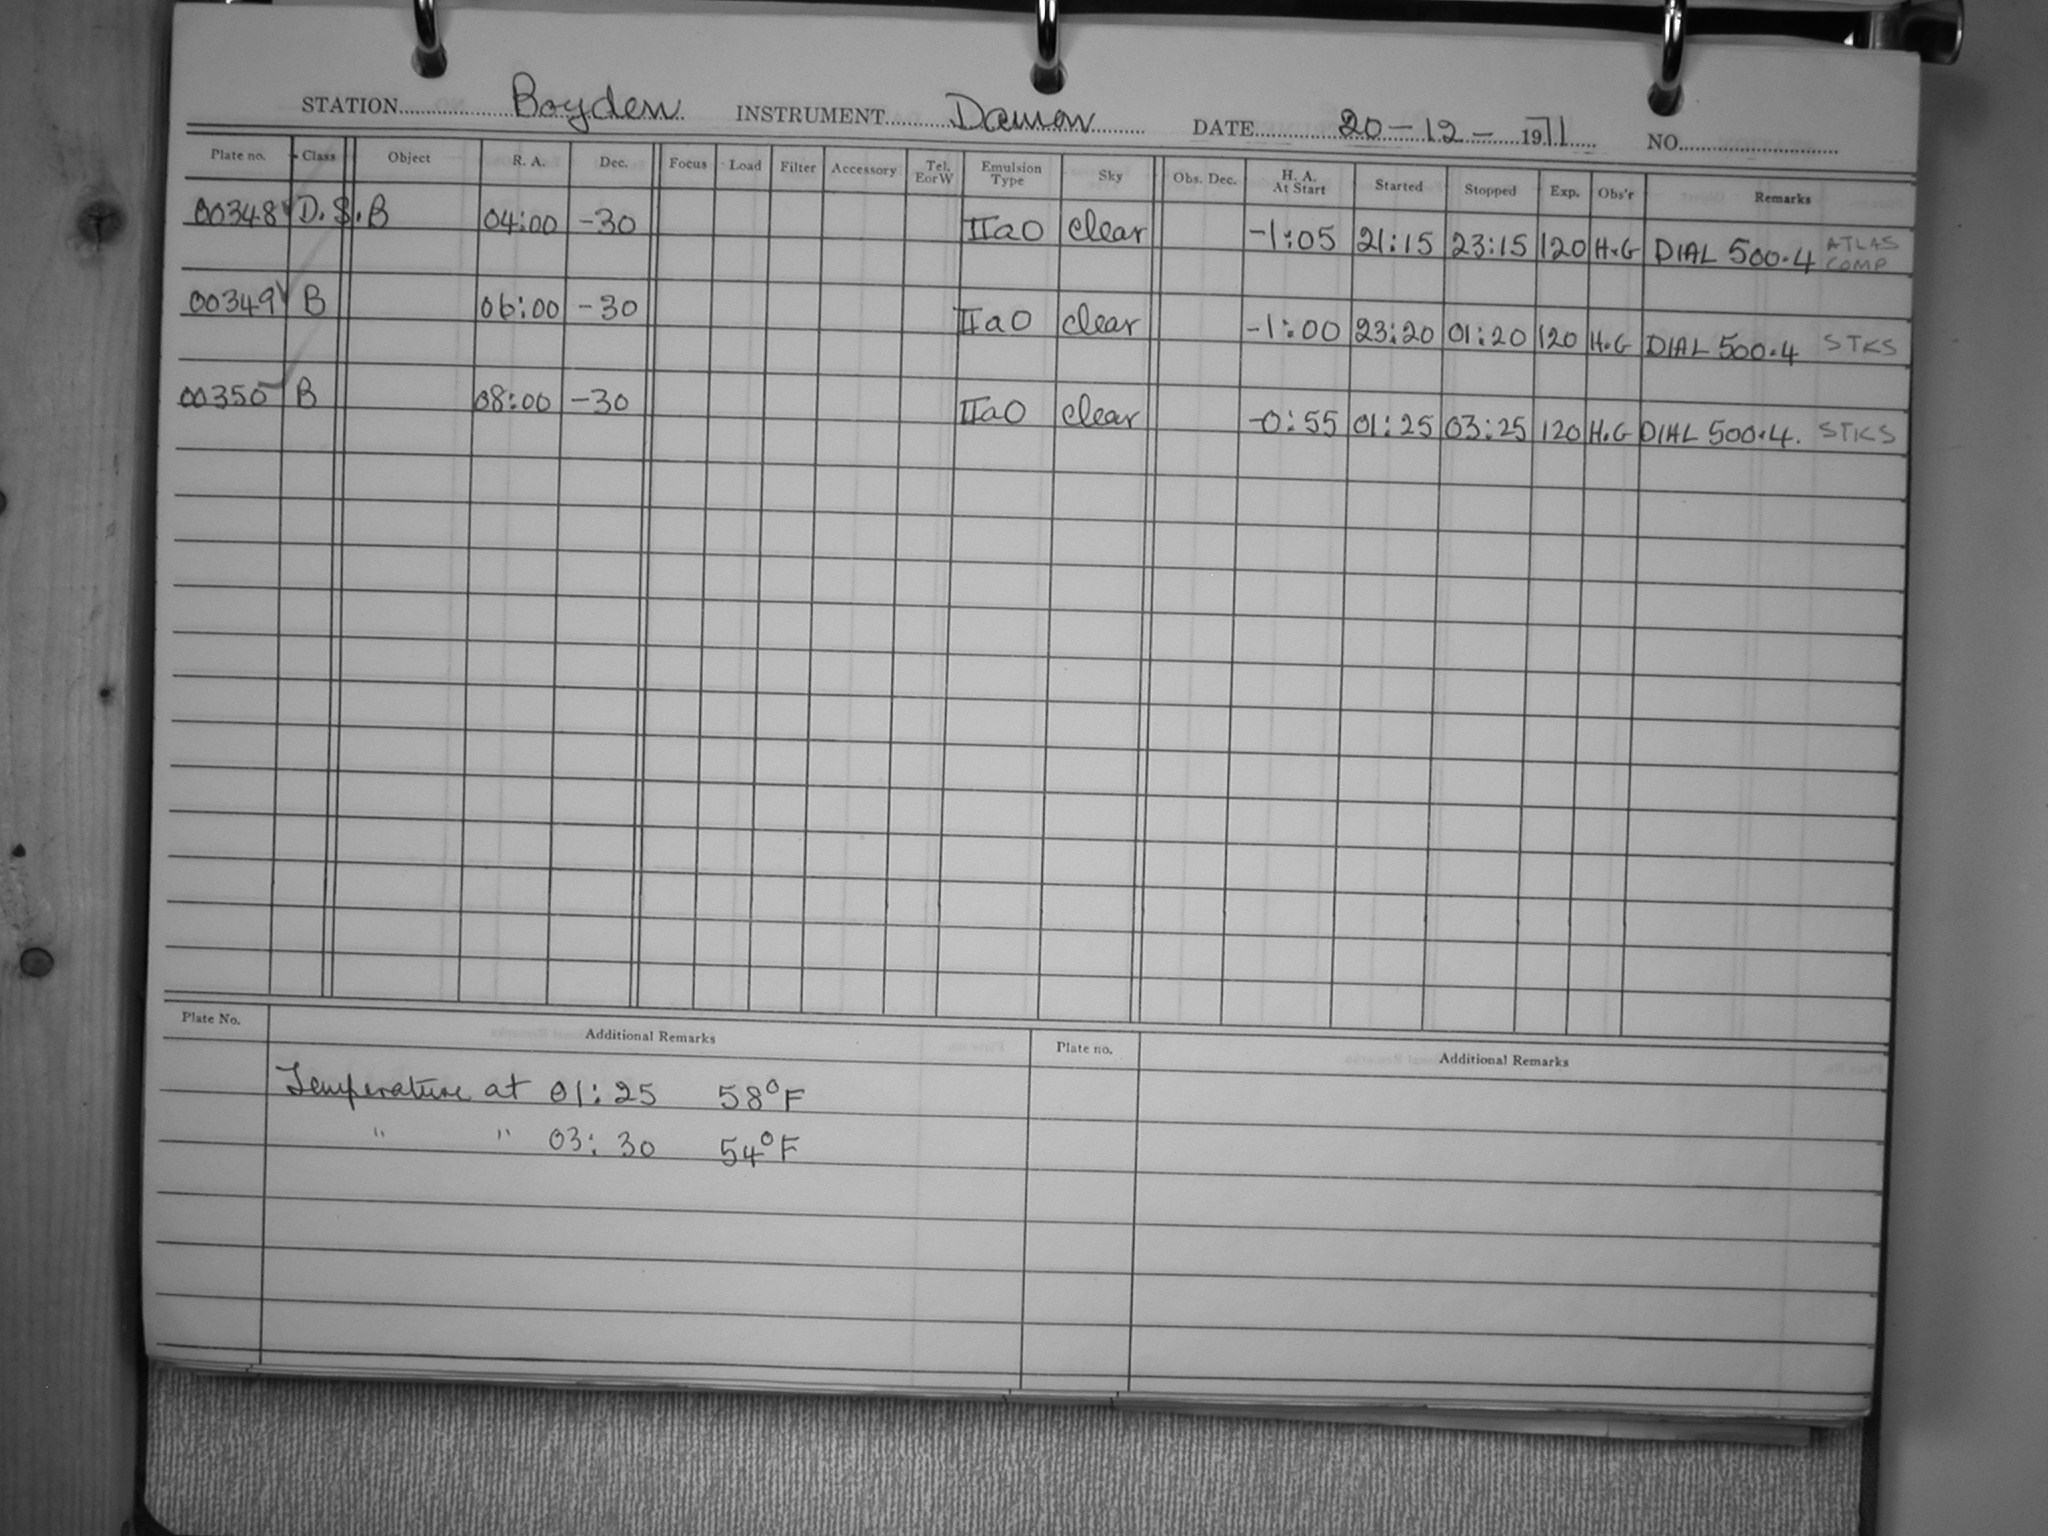 STATION Boyden INSTRUMENT Damon DATE 20-12-1971 NO.
Plate no. Class Object R. A. Dec. Focus Load Filter Accessory Tel. E or W Emulsion Type Sky Obs. Dec. H. A. At Start Started Stopped Exp. Obs'r Remarks
00348 D.S.B 04:00 -30 IIaO clear -1:05 21:15 23:15 120 H.G DIAL 500.4 ATLAS COMP
00349 B 06:00 -30 IIaO clear -1:00 23:20 01:20 120 H.G DIAL 500.4 STKS
00350 B 08:00 -30 IIaO clear -0:55 01:25 03:25 120 H.G DIAL 500.4. STKS
Plate No. Additional Remarks Plate no. Additional Remarks
Temperature at 01:25 58°F
" " 03:30 54°F